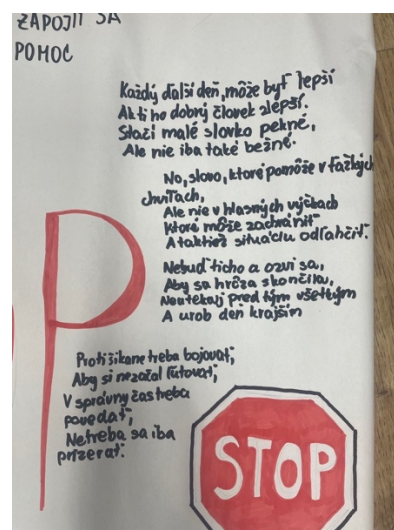 ZAPOJIŤ SA
POMOC
Každý ďalší deň, môže byť lepší
Ak ti ho dobrý človek zlepší.
Stačí malé slovko pekné,
Ale nie iba také bežné.
No, slovo, ktoré pomôže v ťažkých
chvíľach,
Ale nie v hlasných výčkach
Ktoré môže zachrániť
A taktiež situáciu odľahčiť.
Nebuď ticho a ozvi sa,
Aby sa hrôza skončila,
Neutekaj pred tým všetkým
A urob deň krajším
P
Proti šikane treba bojovať,
Aby si nezačal ľutovať,
V správny čas treba
povedať,
Netreba sa iba
prizerať.
STOP